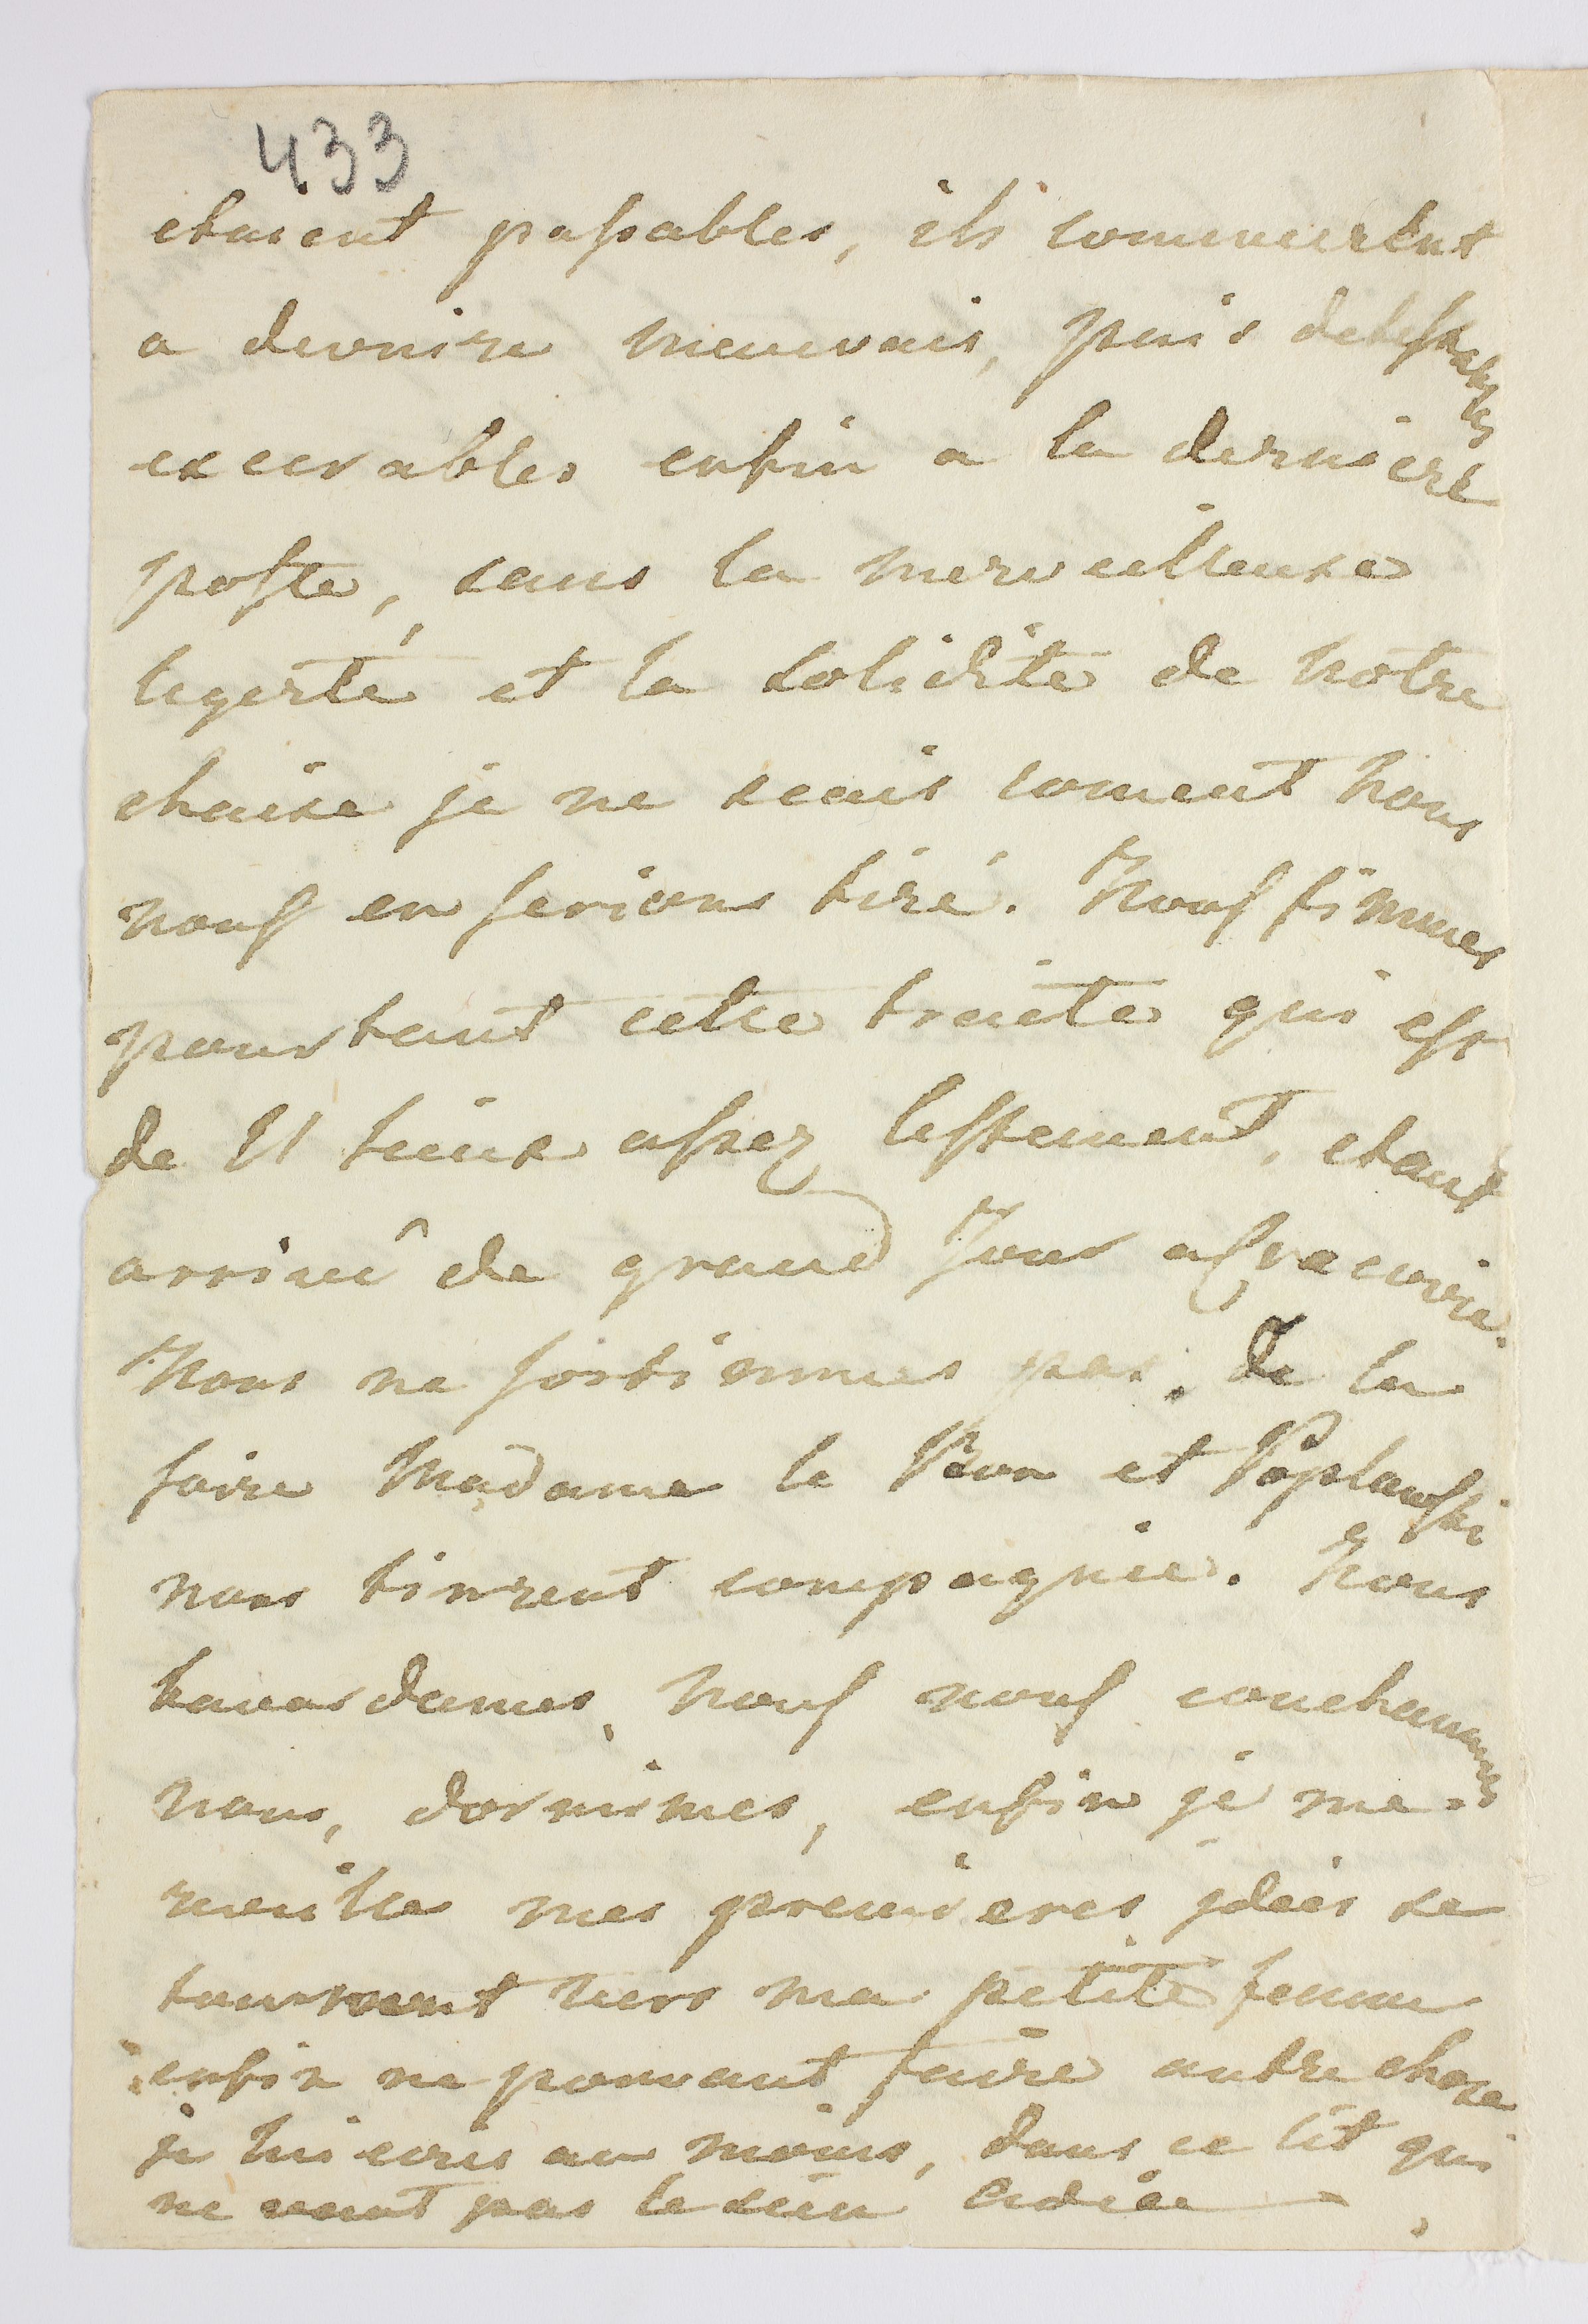 433
etaient passables, ils commencerent
a devenire mauvais, puis detestables
execrables enfin a la derniere
poste, sans la merveilleuse
legerté et la solidité de notre
chaise je ne scais coment nous
nous en serions tiré. Nous finimes
pourtant cette traite qui est
de 11 lieux assez lestement, etant
arrivé de grand jour a Cracovie.
Nous ne sortimmes pas. De la
soire Madame le Bon et Poplawski
nous tinrent compagnie. Nous
bavardames, nous nous couchammes
nous, dormimes, enfin je me
reveille mes premieres jdées se
tournent vers ma petite femme
enfin ne pouvant faire autre chose
je lui ecris au moins, dans ce lit qui
ne vaut pas le sien Adieu